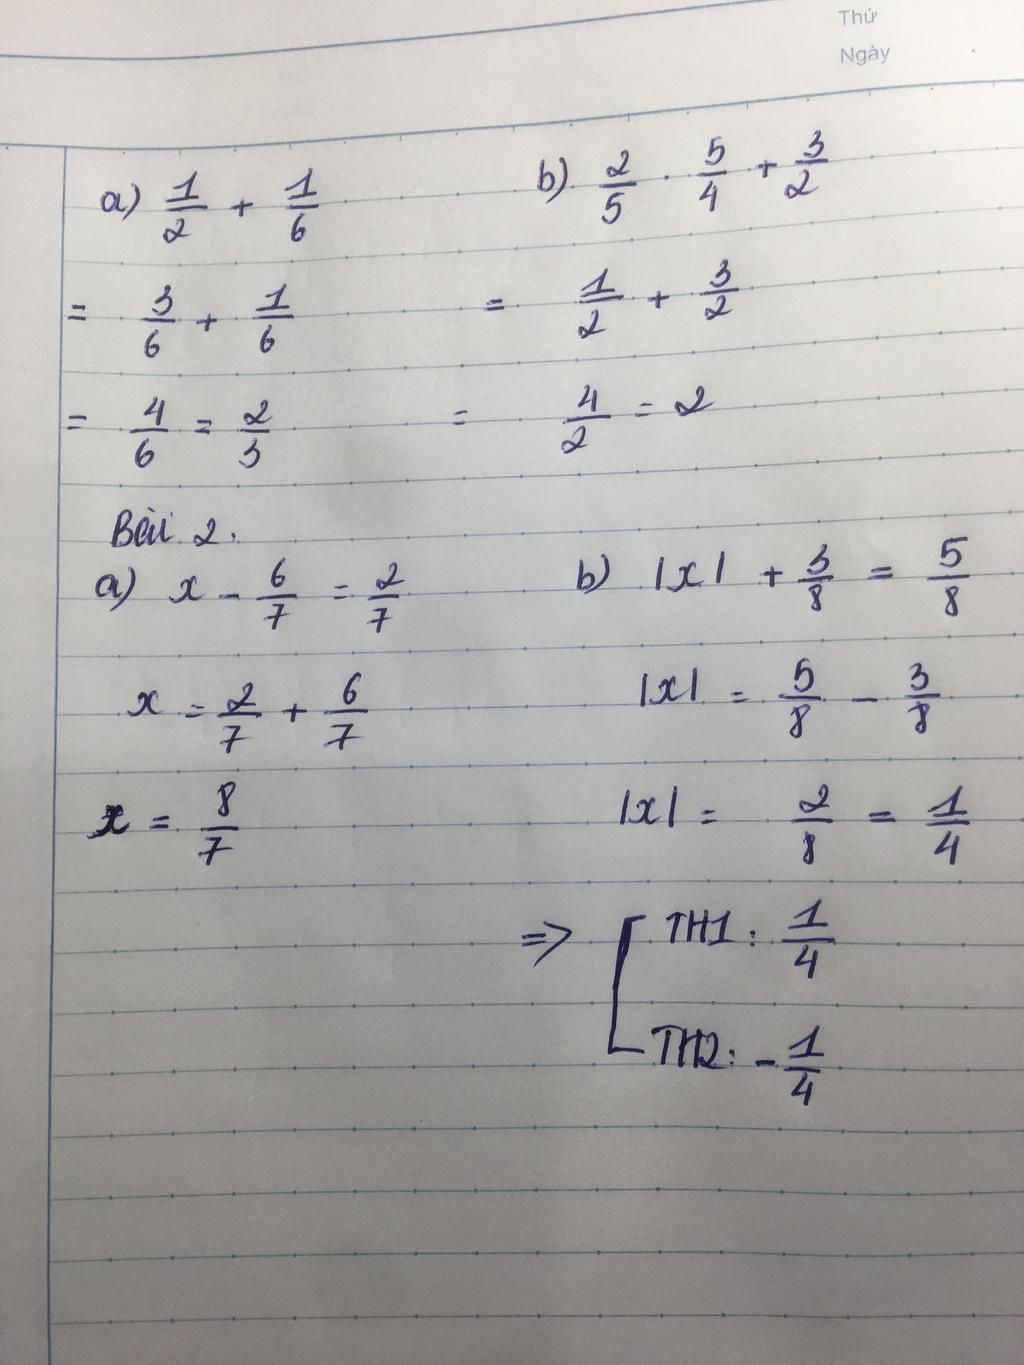 Thứ
Ngày
a) 1/2 + 1/6
= 3/6 + 1/6
= 4/6 = 2/3
b) 2/5 . 5/4 + 3/2
= 1/2 + 3/2
= 4/2 = 2
Bài 2.
a) x - 6/7 = 2/7
x = 2/7 + 6/7
x = 8/7
b) |x| + 3/8 = 5/8
|x| = 5/8 - 3/8
|x| = 2/8 = 1/4
=> [ TH1: 1/4
TH2: -1/4